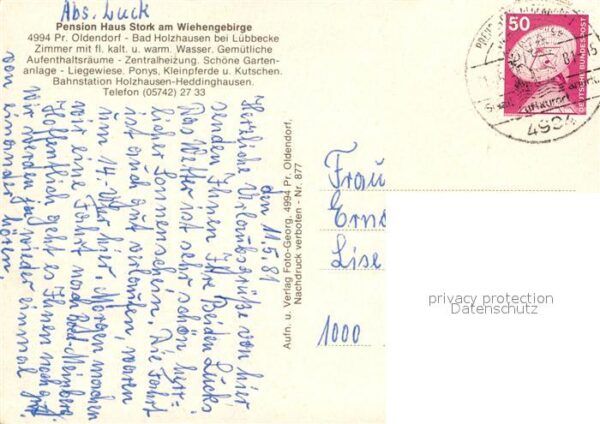 Abs. Luck
Pension Haus Stork am Wiehengebirge
4994 Pr. Oldendorf - Bad Holzhausen bei Lübbecke
Zimmer mit fl. kalt. u. warm. Wasser. Gemütliche
Aufenthaltsräume - Zentralheizung. Schöne Garten-
anlage - Liegewiese. Ponys, Kleinpferde u. Kutschen.
Bahnstation Holzhausen-Heddinghausen.
Telefon (05742) 27 33
den 11.5.81
Herzliche Urlaubsgrüße von hier
senden Ihnen Ihre Beiden Lucks
Das Wetter ist sehr schön, herr-
licher Sonnenschein. Die Fahrt
ist auch gut verlaufen, waren
um 14 Uhr hier. Morgen machen
wir eine Fahrt nach Bad-Meinberg
Hoffentlich geht es Ihnen noch gut
Wir werden ja wieder einmal
von einander hören.
Aufn. u. Verlag Foto-Georg, 4994 Pr. Oldendorf.
Nachdruck verboten - Nr. 877
50
DEUTSCHE BUNDESPOST
4994
Frau
Erns
Lise
1000
privacy protection
Datenschutz